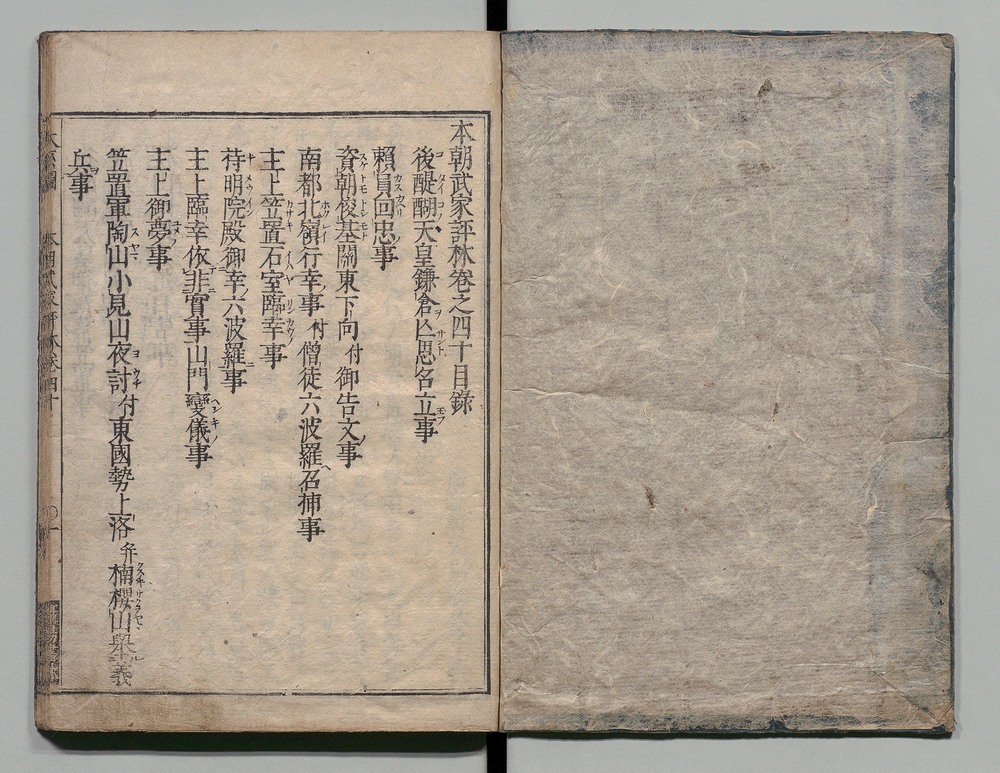 本朝武家評林卷之四十目録
後醍醐天皇鎌倉亡思召立事
頼員回忠事
資朝俊基關東下向付御告文事
南都北嶺行幸事付僧徒六波羅召捕事
主上笠置石室臨幸事
持明院殿御幸六波羅事
主上臨幸依非實事山門變儀事
主上御夢事
笠置軍陶山小見山夜討付東國勢上洛并楠櫻山舉義
兵事
本朝武家評林卷四十